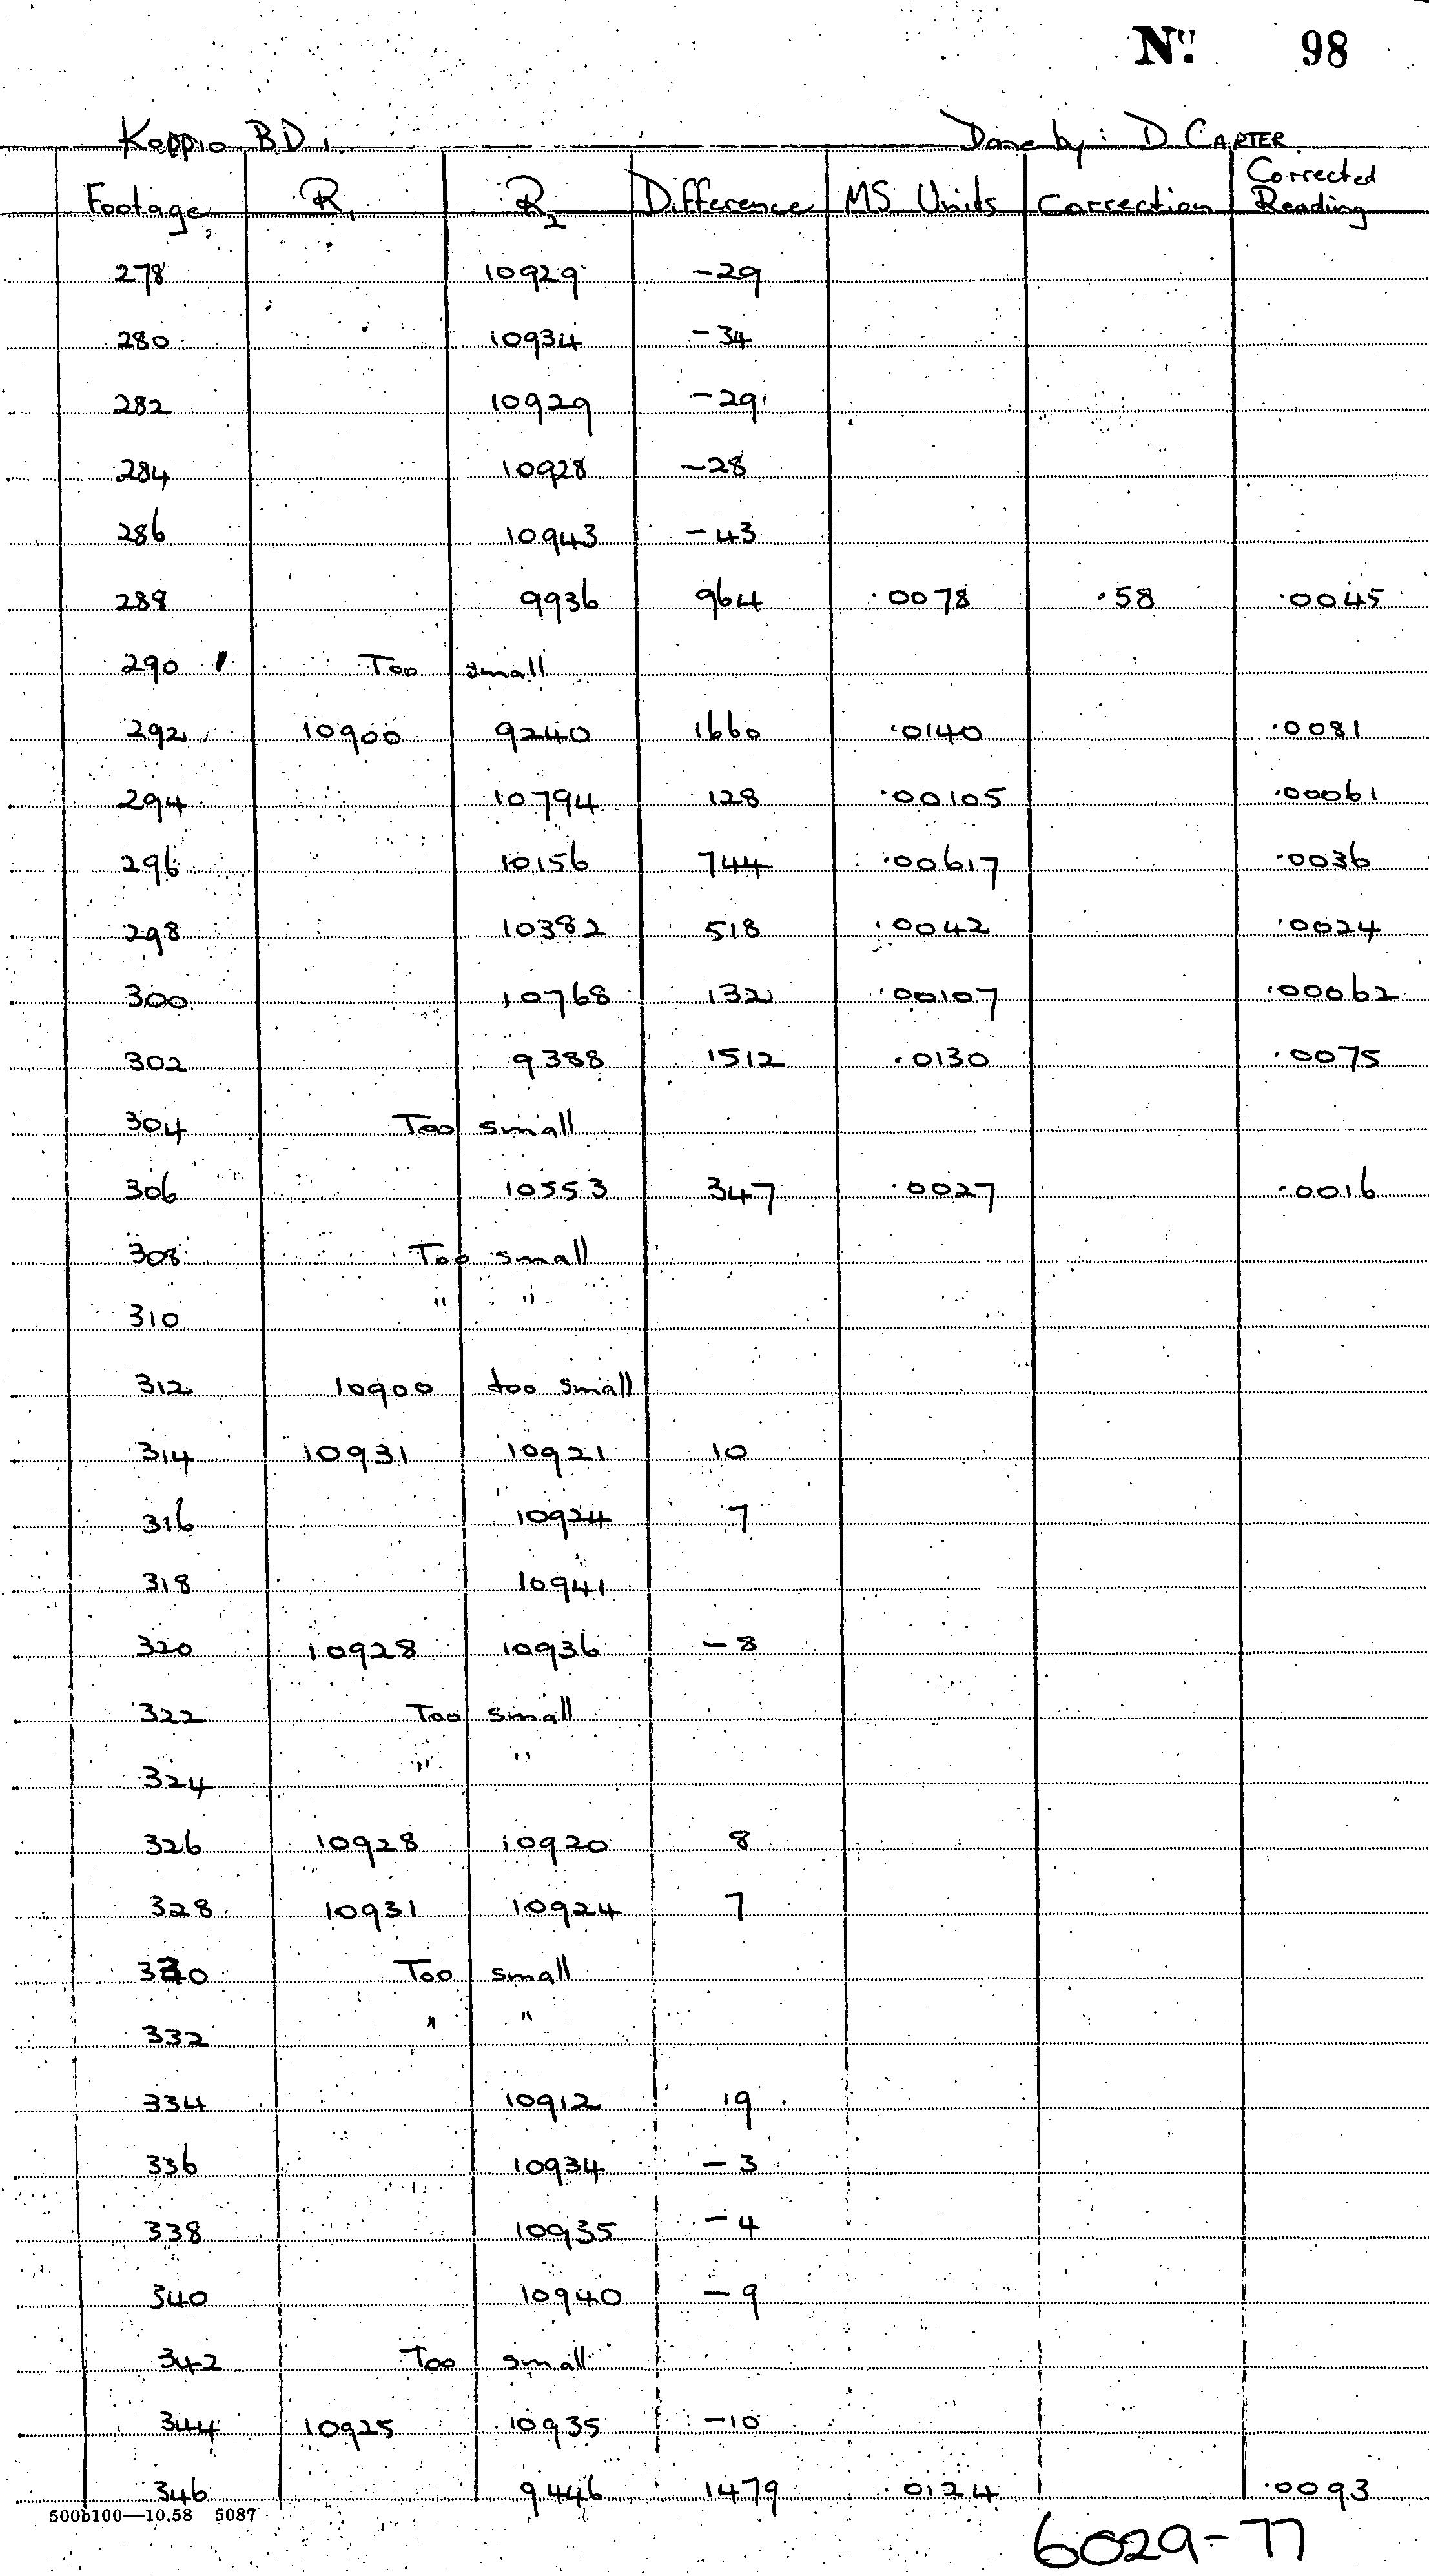 Nº 98
Koppio BD 1. Done by: D CARTER
Footage R1 R2 Difference MS Units Correction Corrected Reading
278 10929 -29
280 10934 -34
282 10929 -29
284 10928 -28
286 10943 -43
288 9936 964 .0078 .58 .0045
290 Too small
292 10900 9240 1660 .0140 .0081
294 10794 128 .00105 .00061
296 10156 744 .00617 .0036
298 10382 518 .0042 .0024
300 10768 132 .00107 .00062
302 9388 1512 .0130 .0075
304 Too small
306 10553 347 .0027 .0016
308 Too small
310 " "
312 10900 too small
314 10931 10921 10
316 10924 7
318 10941
320 10928 10936 -8
322 Too small
324 " "
326 10928 10920 8
328 10931 10924 7
330 Too small
332 " "
334 10912 19
336 10934 -3
338 10935 -4
340 10940 -9
342 Too small
344 10925 10935 -10
346 9446 1479 .0124 .0093
500b100—10.58 5087
6029-77